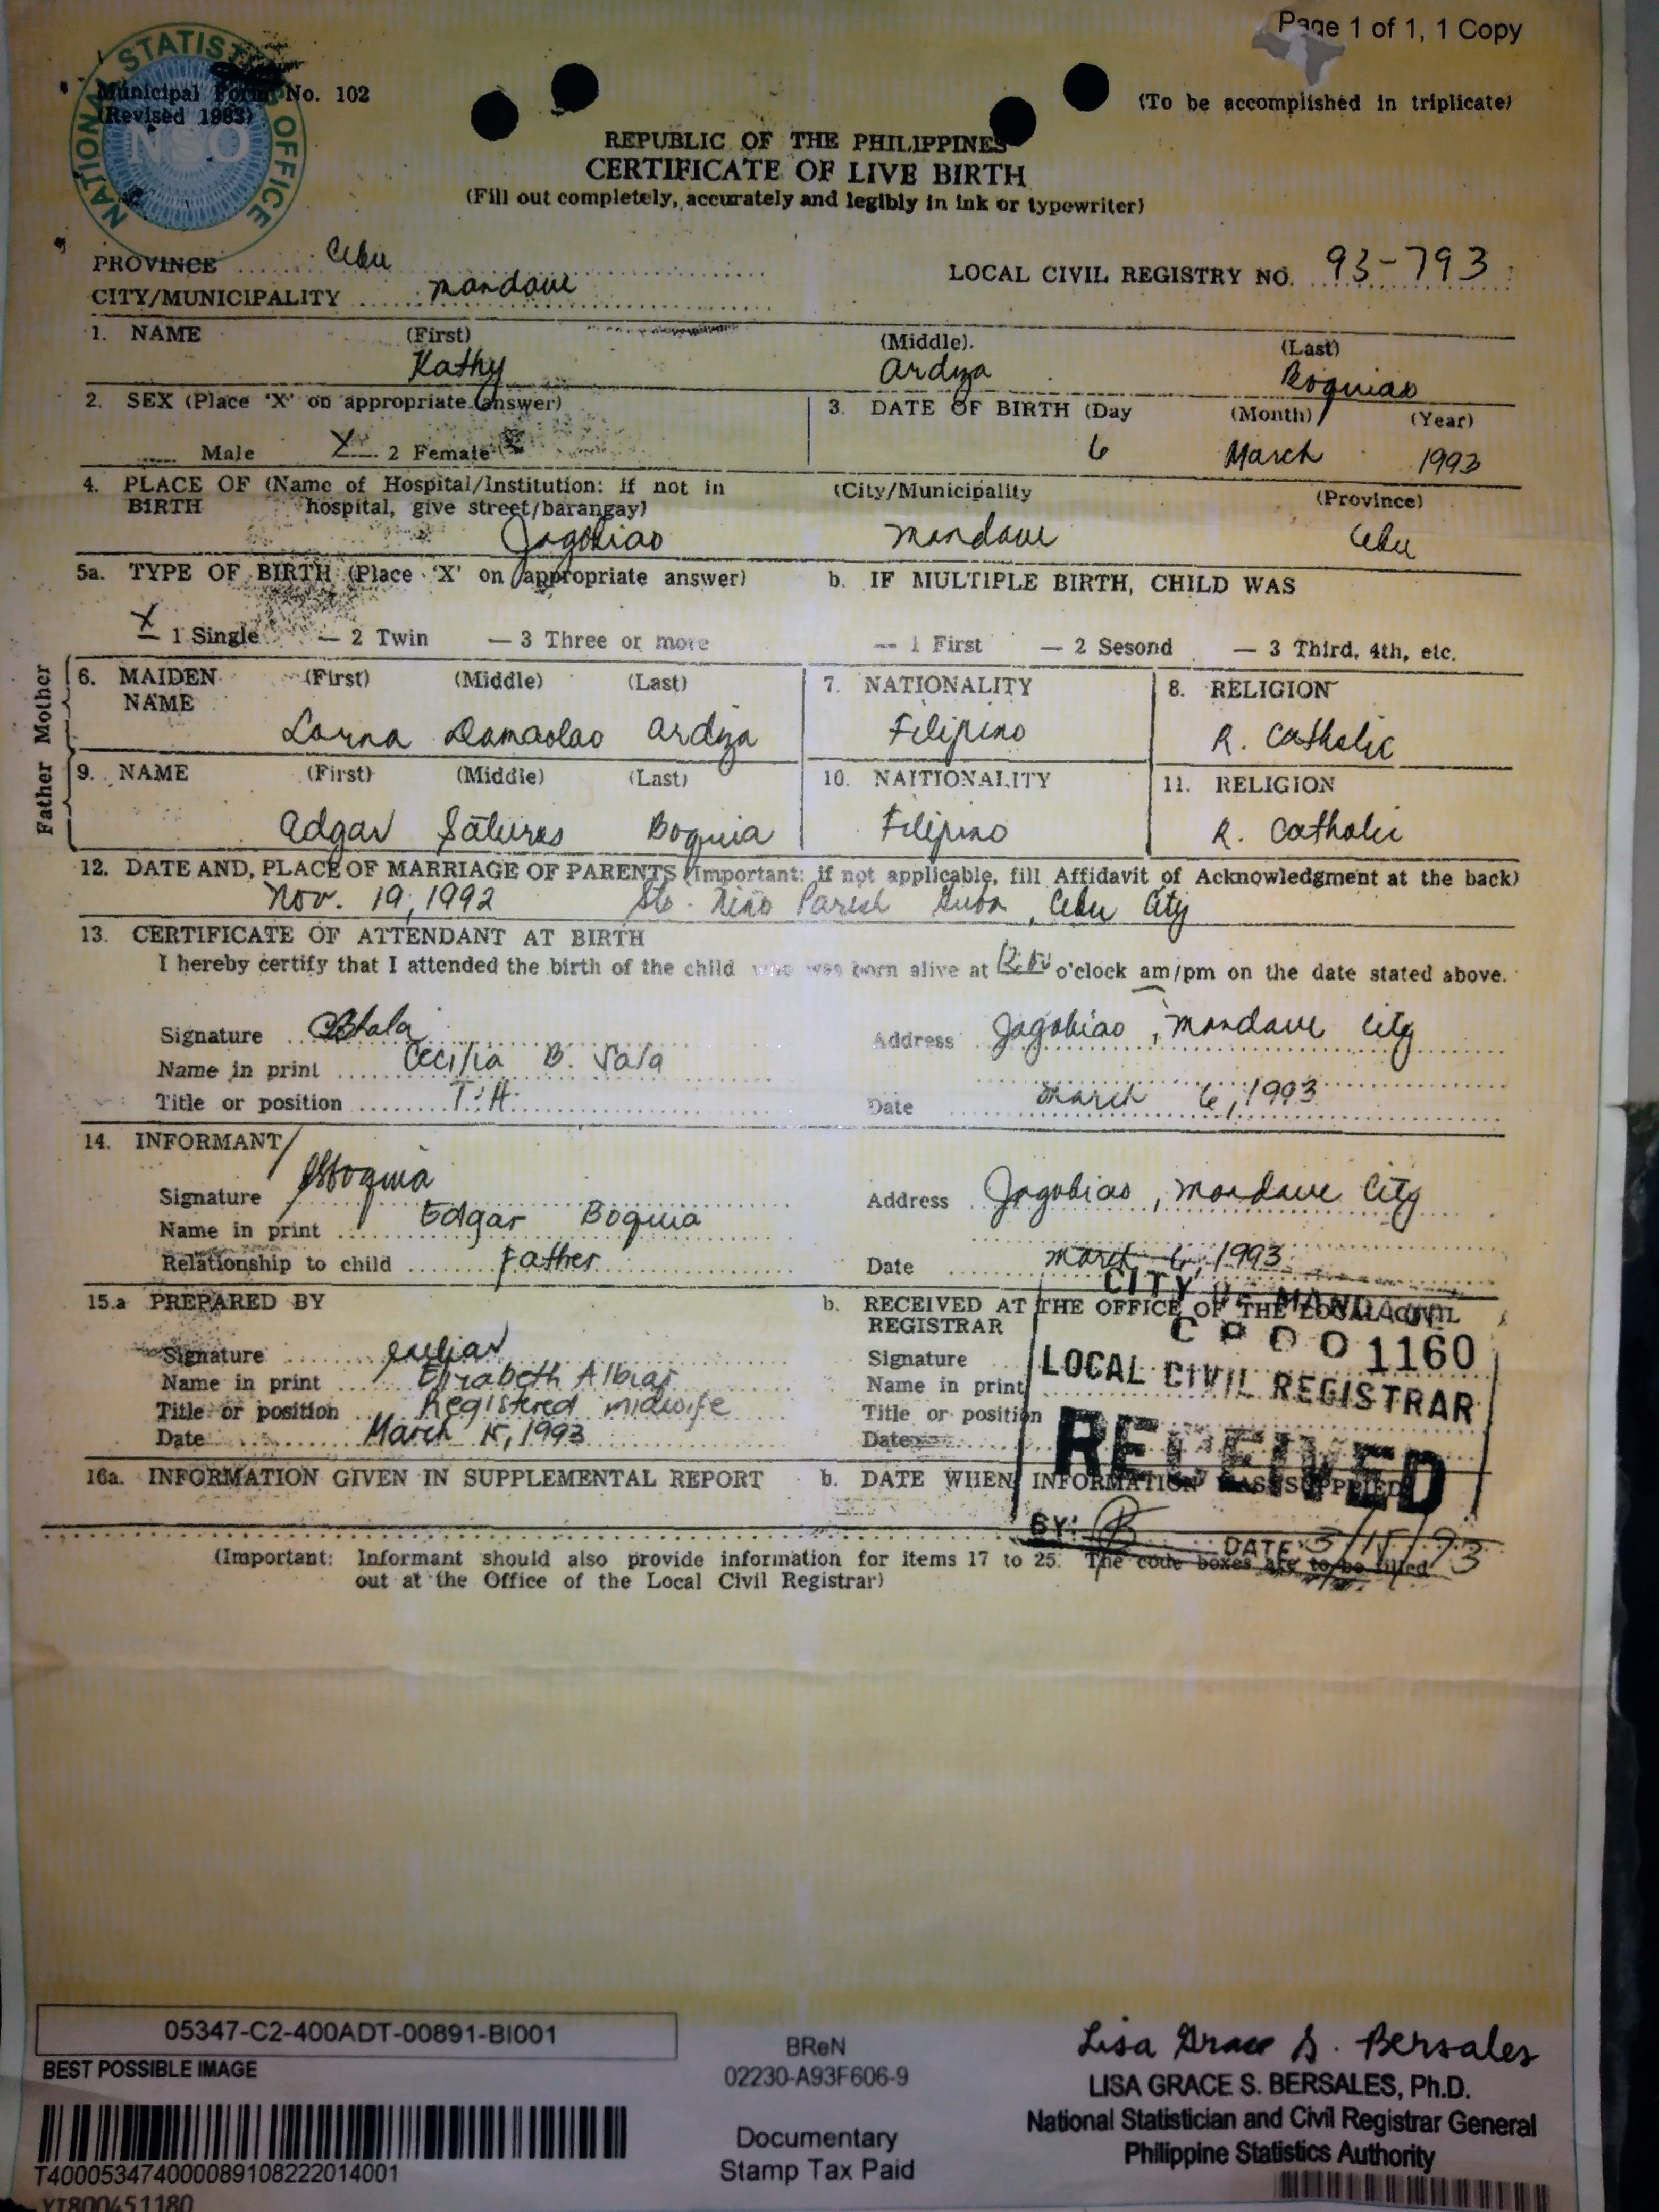 Page 1 of 1, 1 Copy
NATIONAL STATISTICS OFFICE
NSO
Municipal Form No. 102
(Revised 1983)
(To be accomplished in triplicate)
REPUBLIC OF THE PHILIPPINES
CERTIFICATE OF LIVE BIRTH
(Fill out completely, accurately and legibly in ink or typewriter)
PROVINCE Cebu
LOCAL CIVIL REGISTRY NO. 93-793
CITY/MUNICIPALITY Mandaue
1. NAME (First) (Middle). (Last)
Kathy Ardiza Boquiao
2. SEX (Place 'X' on appropriate answer)
Male X 2 Female
3. DATE OF BIRTH (Day (Month) (Year)
6 March 1993
4. PLACE OF (Name of Hospital/Institution: if not in (City/Municipality (Province)
BIRTH hospital, give street/barangay)
Jagobiao Mandaue Cebu
5a. TYPE OF BIRTH (Place 'X' on appropriate answer) b. IF MULTIPLE BIRTH, CHILD WAS
X 1 Single — 2 Twin — 3 Three or more — 1 First — 2 Sesond — 3 Third, 4th, etc.
Mother
6. MAIDEN (First) (Middle) (Last) 7. NATIONALITY 8. RELIGION
NAME
Lorna Damaolao Ardiza Filipino R. Catholic
Father
9. NAME (First) (Middle) (Last) 10. NAITIONALITY 11. RELIGION
Edgar Satures Boquia Filipino R. Catholic
12. DATE AND, PLACE OF MARRIAGE OF PARENTS (Important: if not applicable, fill Affidavit of Acknowledgment at the back)
Nov. 19, 1992 Sto. Niño Parish Guba, Cebu City
13. CERTIFICATE OF ATTENDANT AT BIRTH
I hereby certify that I attended the birth of the child who was born alive at o'clock am/pm on the date stated above.
Signature Address Jagobiao, Mandaue City
Name in print Cecilia B. Sala
Title or position T.H. Date March 6, 1993
14. INFORMANT
Signature Boquia Address Jagobiao, Mandaue City
Name in print Edgar Boquia
Relationship to child Father Date March 6, 1993
15.a PREPARED BY b. RECEIVED AT THE OFFICE OF THE LOCAL CIVIL
REGISTRAR
Signature
Name in print Elizabeth Albiar
Title or position Registered midwife
Date March 15, 1993
Signature
Name in print
Title or position
Date
CITY OF MANDAUE
1160
LOCAL CIVIL REGISTRAR
RECEIVED
BY: DATE: 3/15/93
16a. INFORMATION GIVEN IN SUPPLEMENTAL REPORT b. DATE WHEN INFORMATION WAS SUPPLIED
(Important: Informant should also provide information for items 17 to 25. The code boxes are to be filled
out at the Office of the Local Civil Registrar)
05347-C2-400ADT-00891-BI001
BEST POSSIBLE IMAGE
T400053474000089108222014001
YT800451180
BReN
02230-A93F606-9
Documentary
Stamp Tax Paid
Lisa Grace S. Bersales
LISA GRACE S. BERSALES, Ph.D.
National Statistician and Civil Registrar General
Philippine Statistics Authority